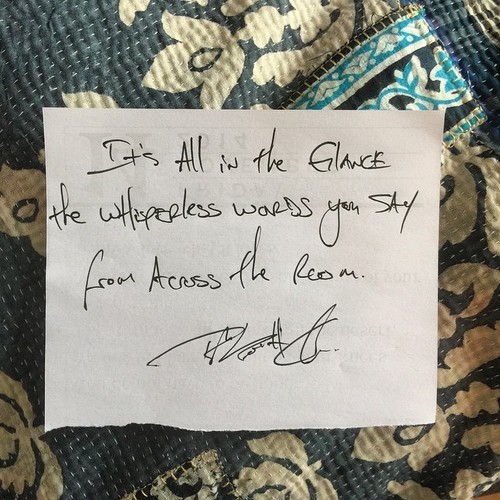 It's All in the Glance
the whisperless words you say
from Across the Room.